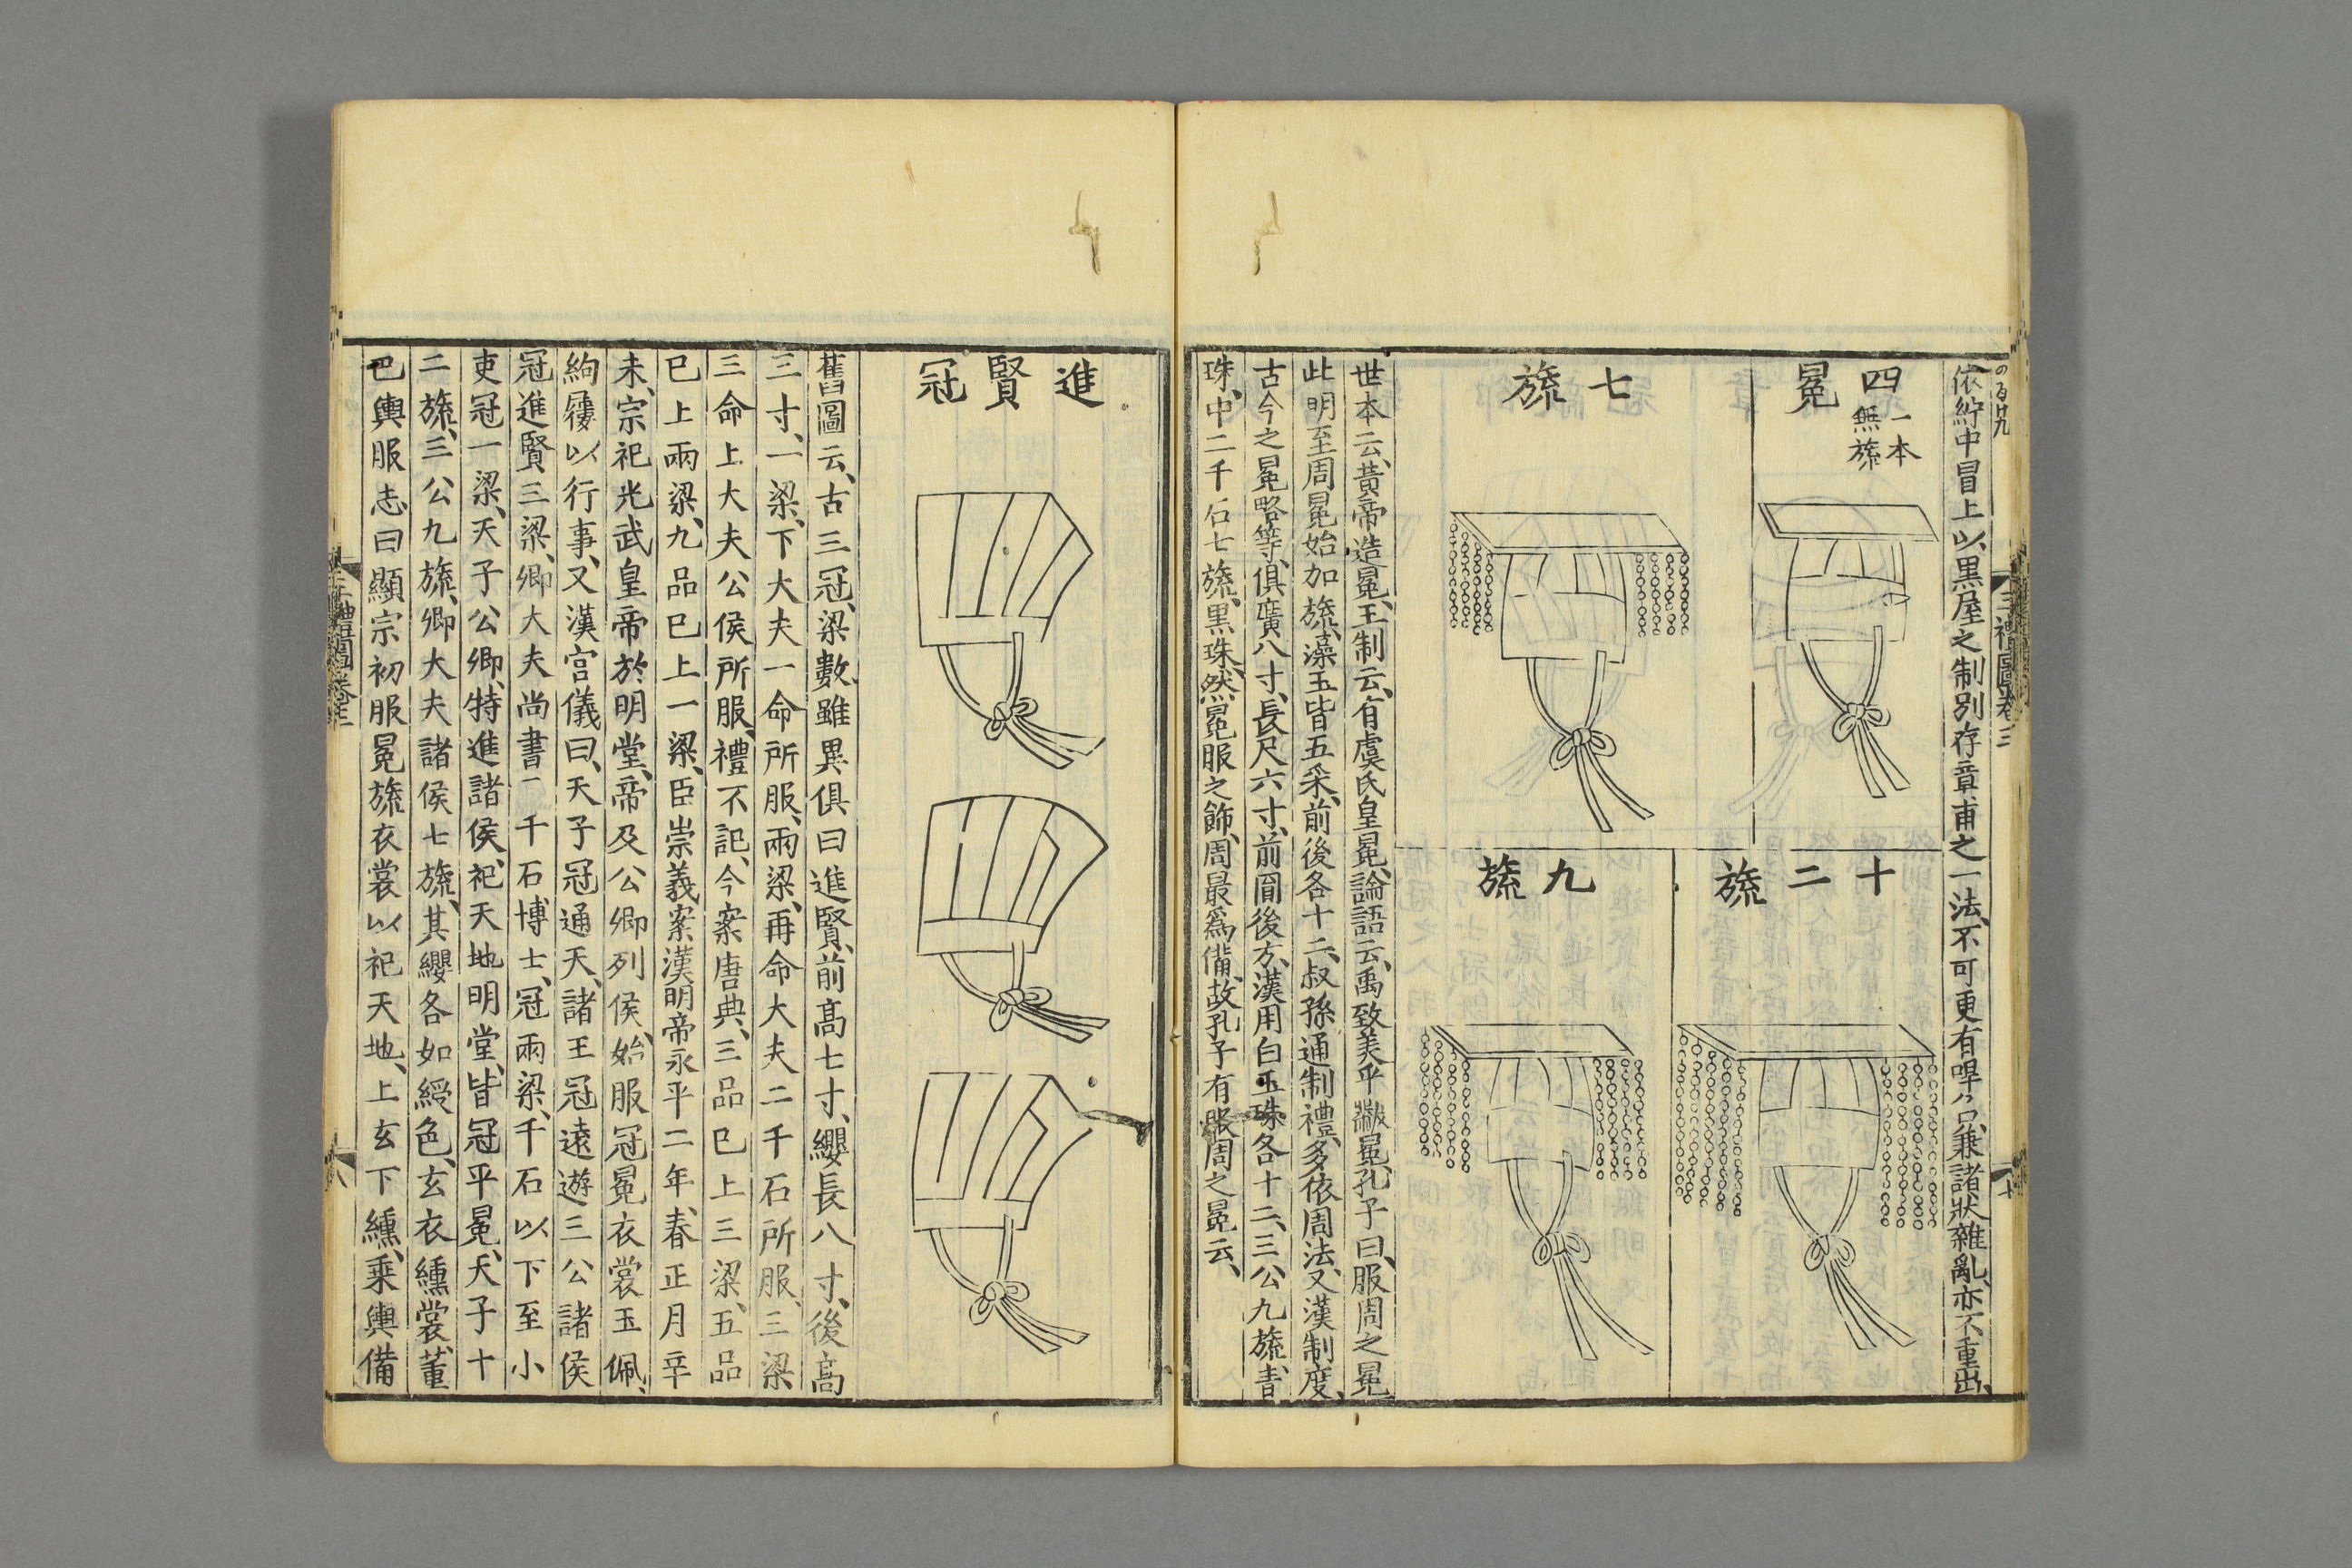 依紵中冒上以黑屋之制別存章甫之一法、不可更有哻
兼諸狀雜亂、亦不重出、
四冕
一本
無旒
七旒
十二旒
九旒
世本云、黃帝造冕、王制云、有虞氏皇冕、論語云、禹致美乎黻冕、孔子曰、服周之冕
此明至周冕始加旒、藻玉皆五采、前後各十二、叔孫通制禮、多依周法、又漢制度、
古今之冕略等、俱廣八寸、長尺六寸、前圓後方、漢用白玉珠各十二、三公九旒、青
珠、中二千石七旒、黑珠、然冕服之飾、周最爲備、故孔子有服周之冕云、
進賢冠
舊圖云、古三冠、梁數雖異俱曰進賢、前高七寸、纓長八寸、後高
三寸、一梁、下大夫一命所服、兩梁、再命大夫二千石所服、三梁
三命上大夫公侯所服、禮不記、今案唐典、三品已上三梁、五品
已上兩梁、九品已上一梁、臣崇義案漢明帝永平二年、春正月辛
未、宗祀光武皇帝於明堂、帝及公卿列侯、始服冠冕衣裳玉佩、
絇屨以行事、又漢官儀曰、天子冠通天、諸王冠遠遊三公諸侯
冠進賢三梁、卿大夫尚書二千石博士、冠兩梁、千石以下至小
吏冠一梁、天子公卿、特進諸侯、祀天地明堂、皆冠平冕、天子十
二旒、三公九旒、卿大夫諸侯七旒、其纓各如綬色、玄衣纁裳、董
巴輿服志曰顯宗初服冕旒衣裳以祀天地、上玄下纁、乗輿備
三禮圖卷三
七
三禮圖卷三
八